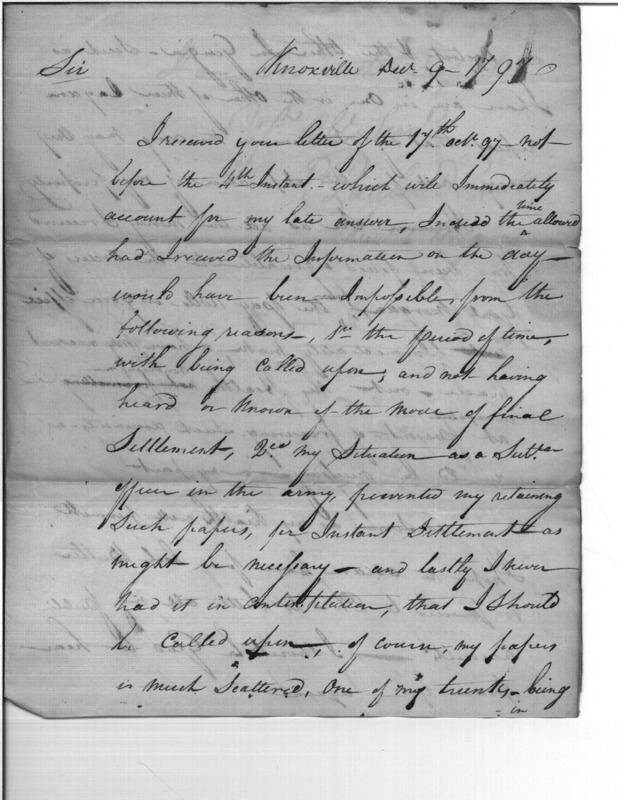 Sir Knoxville Decr 9 - 1797
I received your letter of the 17th octr 97 - not
before the 4th Instant - which will Immediately
account for my late answer, Indeed the time allowed
had I received the Information on the day -
would have been Impossible, from the
following reasons, 1st the period of time,
with being called upon, and not having
heard or Known of the mode of final
Settlement, 2ed my Situation as a Subtn
officer in the army, prevented my retaining
Such papers, for Instant Settlement as
might be necessary - and lastly I never
had it in contemplation, that I Should
be Called upon, of course, my papers
is much Scattered, One of my trunks - being
in